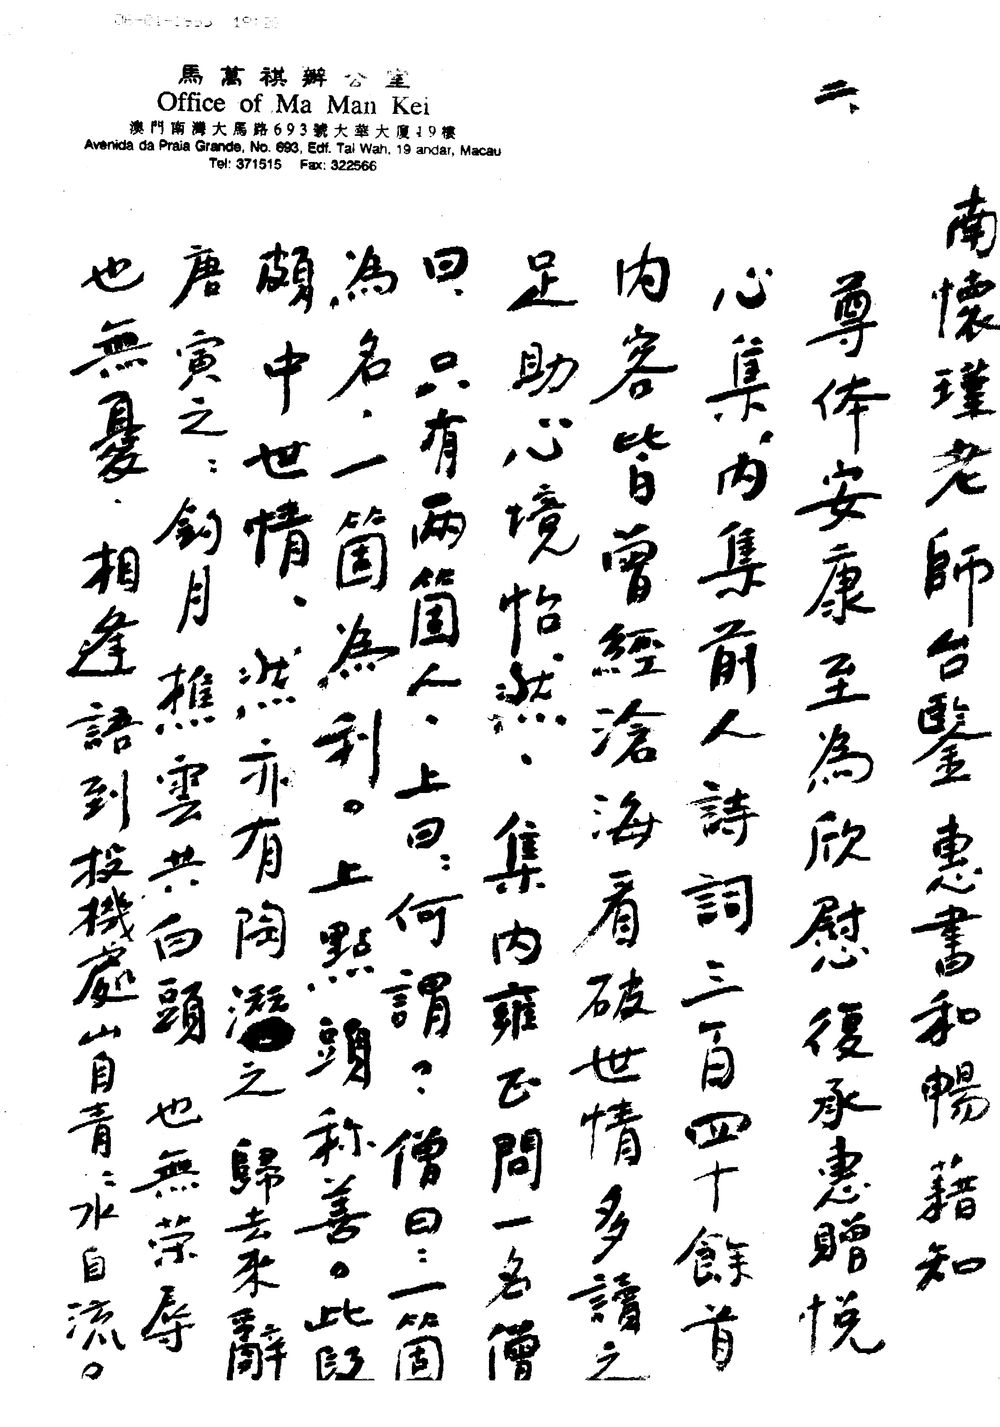 06-01-1995 19:20
馬萬祺辦公室
Office of Ma Man Kei
澳門南灣大馬路693號大華大廈19樓
Avenida da Praia Grande, No. 693, Edf. Tai Wah, 19 andar, Macau
Tel: 371515 Fax: 322566
二、
南懷瑾老師台鑒惠書和暢藉知
尊体安康至為欣慰復承惠贈悅
心集、內集前人詩詞三百四十餘首
內容皆曾經滄海看破世情多讀之
足助心境怡然、集內雍正問一名僧
曰、只有兩箇人、上曰：何謂？僧曰：一箇
為名、一箇為利。上點頭称善。此段
頗中世情、然亦有陶潛之歸去來辭
唐寅之：釣月樵雲共白頭 也無荣辱
也無憂、相逢語到投機處山自青：水自流。